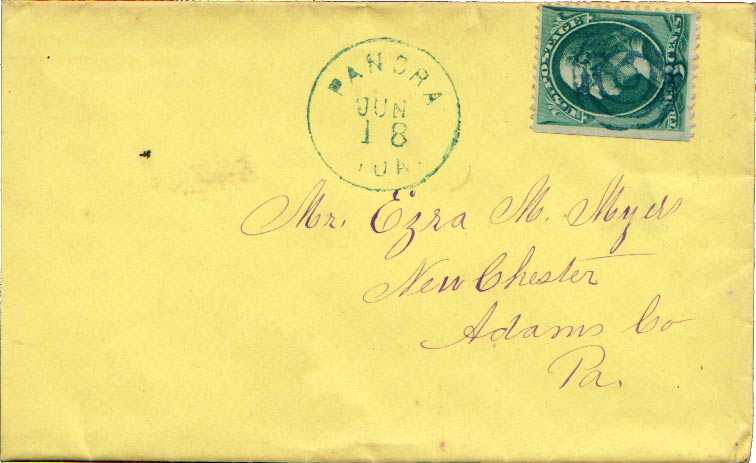 PANORA
JUN
18
U.S. POSTAGE
THREE CENTS
Mr. Ezra M. Myers
New Chester
Adams Co
Pa.